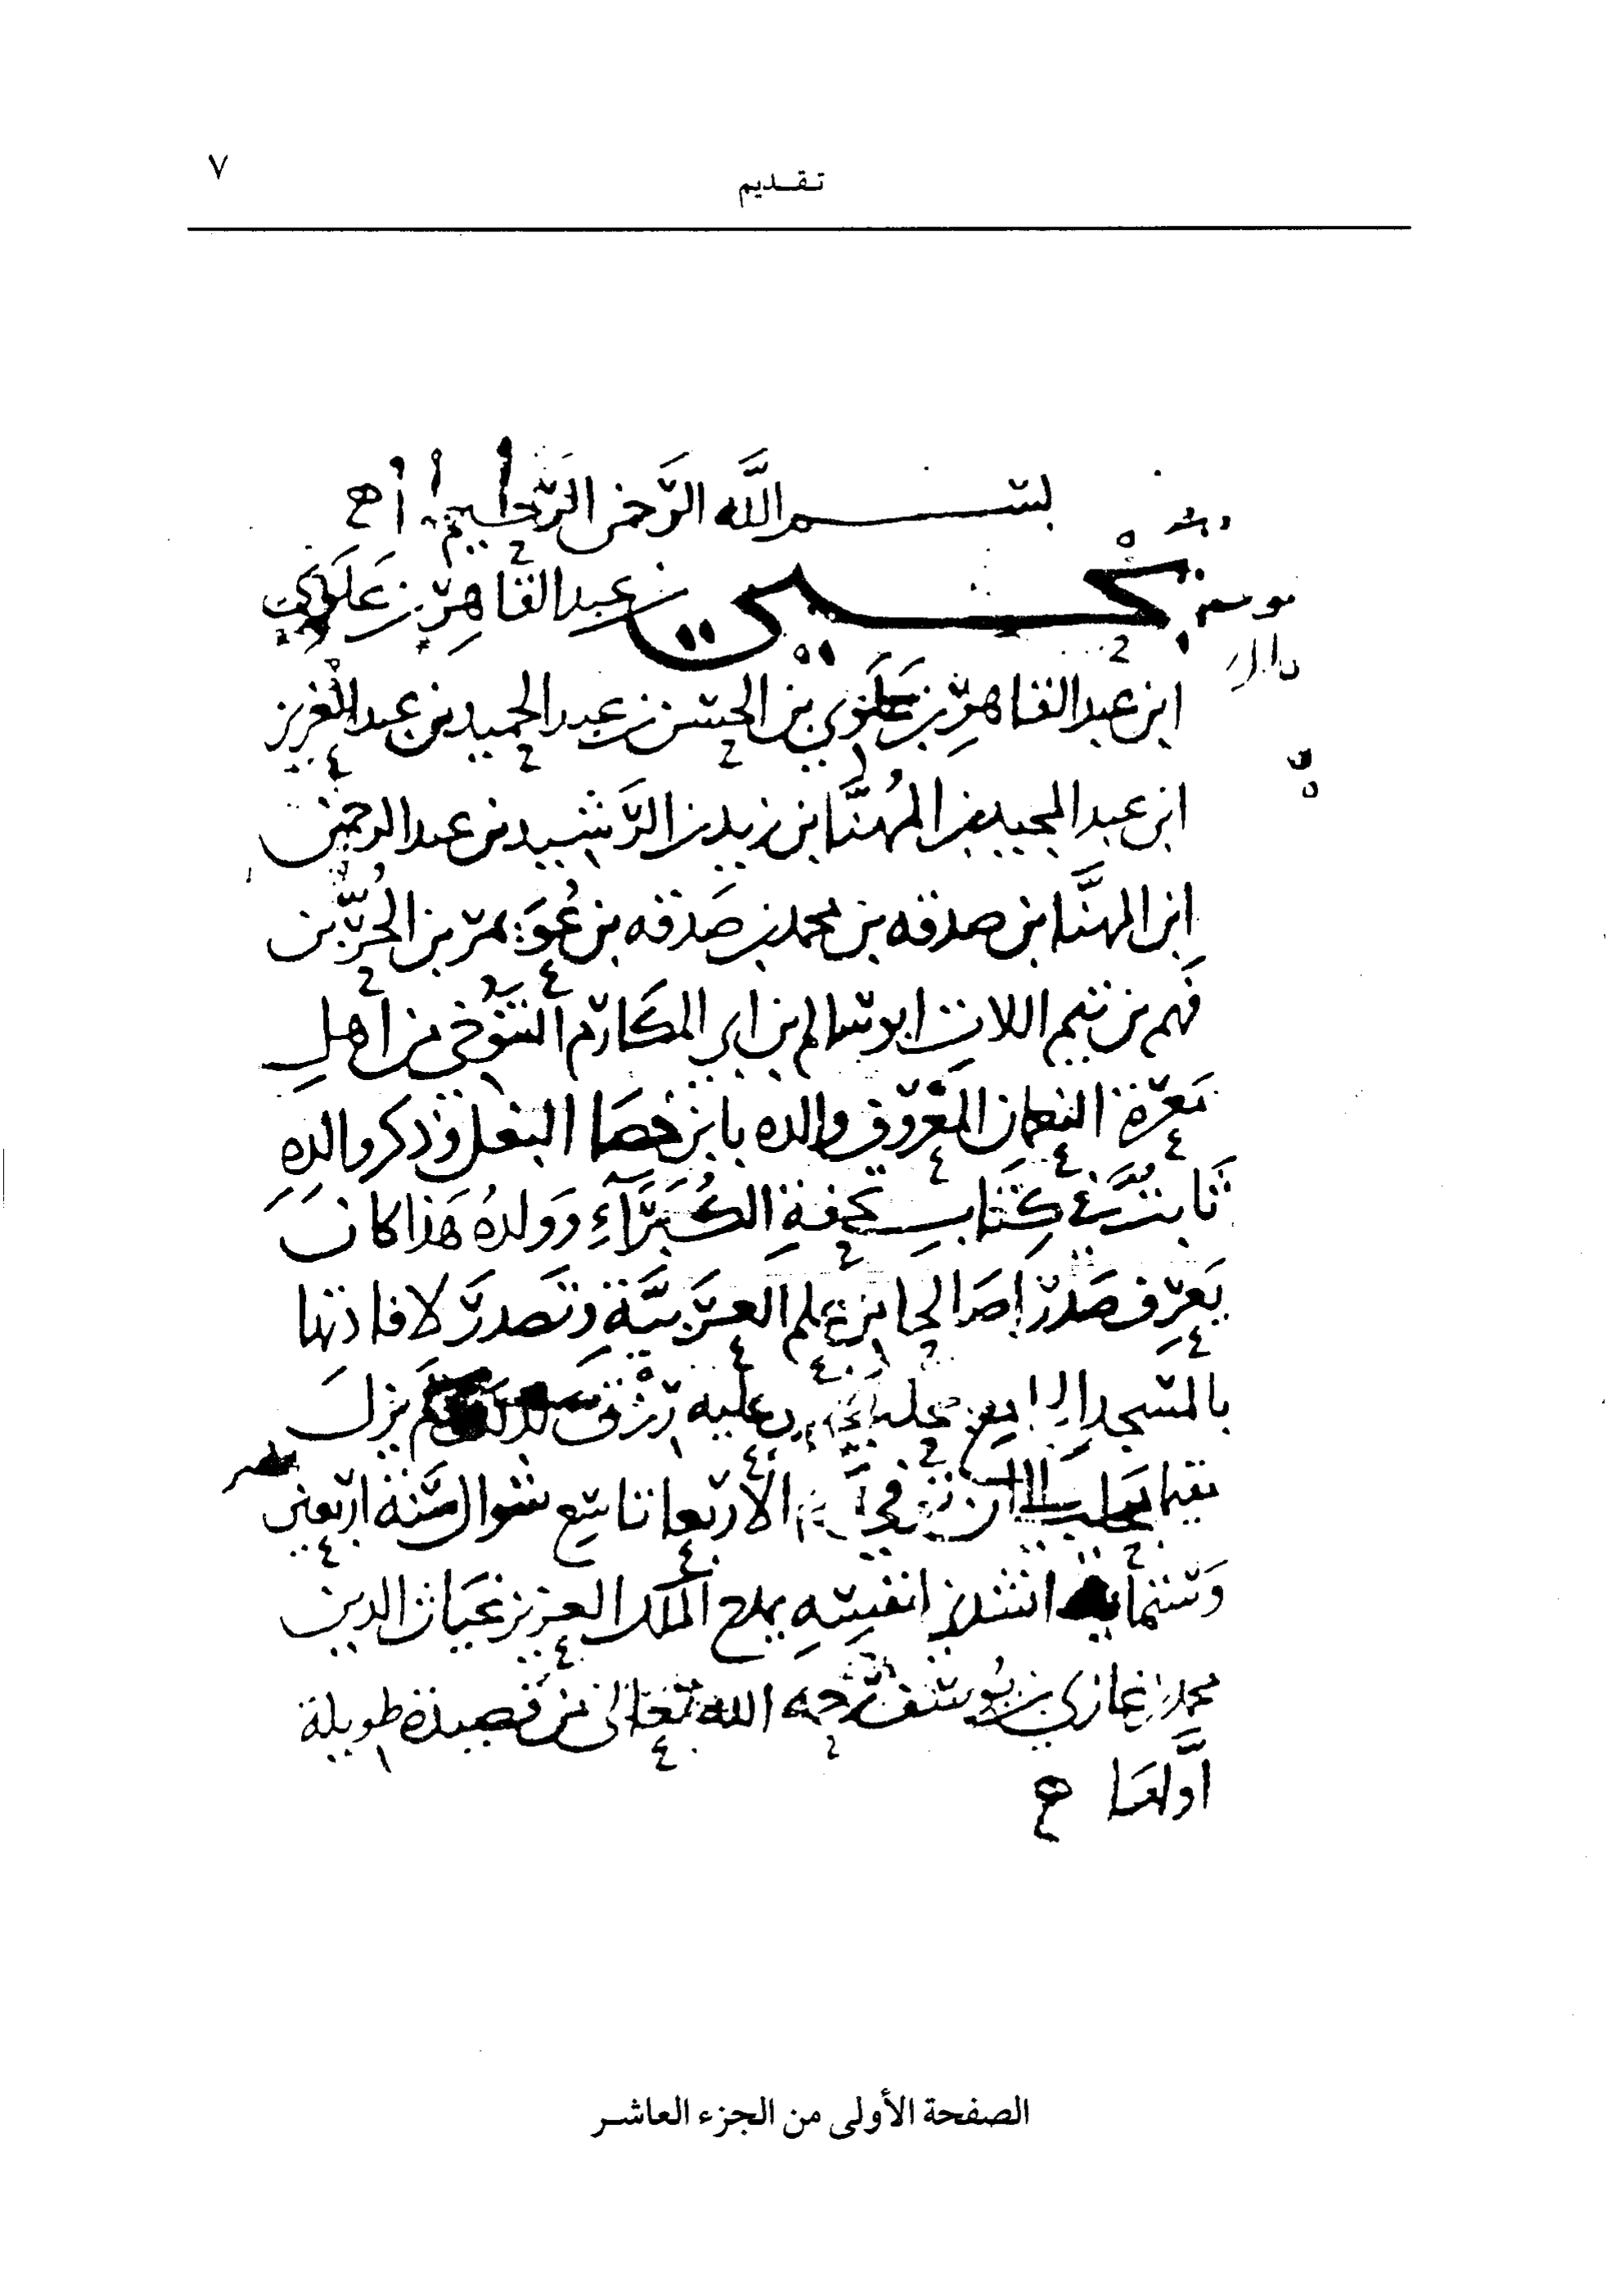 ٧
تقديم
بسم الله الرحمن الرحيم
يحيى بن عبد القاهر بن علوي
ابن عبد القاهر بن علوي بن الحسن بن عبد الحميد بن عبد العزيز
ابن عبد المجيد بن المهنّا بن زيد بن الرشيد بن عبد الرحمن
ابن المهنّا بن صدقه بن محمد بن صدقه بن بن الحرّ بن
فهم بن تيم اللات ابو سالم بن ابي المكارم التنوخي من اهل
معرة النعمان المعروف والده بابن خصا البغل وذكر والده
في كتاب تحفة الكبرآء وولده هذا كان
يعرف صدرا صالحا من علم العربيّة وتصدّر لافادتها
بالمسجد عليه رزق لذلك ولم يزل
بحلب الى ان توفي الاربعا تاسع شوال سنة اربعين
وستمايه انشدني لنفسه يمدح الملك العزيز غياث الدين
محمد بن غازي بن يوسف رحمه الله تعالى من قصيدة طويلة
أوّلها
الصفحة الأولى من الجزء العاشر